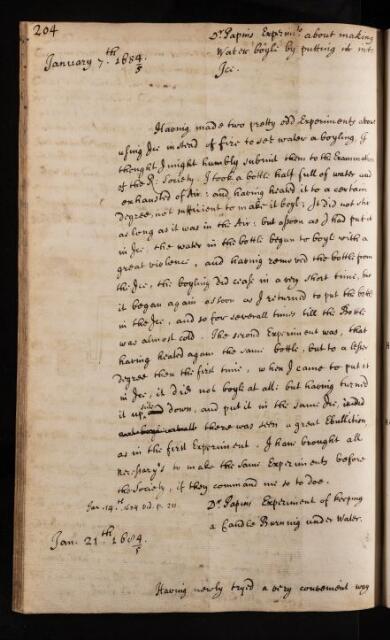 204
January 7.th 1684/5
Dr. Papins Experimts. about making
Water boyle by putting it into
Ice.
Having made two pretty odd Experiments about
using Ice instead of fire to set water a boyling, I
thought I might humbly submit them to the Examination
of the R. Society. I took a bottle half full of water and
exhausted of Air: and having heated it to a certain
degree, not sufficient to make it boyl; It did not stir
as long as it was in the Air: but assoon as I had put it
in Ice, the water in the bottle begun to boyl with a
great violence, and having removed the bottle from
the Ice, the boyling did cease in a very short time, but
it began again as soon as I returned to put the bottle
in the Ice, and so for severall times till the Bottle
was almost cold. The second Experiment was, that
having heated again the same bottle, but to a lesser
degree then the first time, when I came to put it
in Ice, it did not boyle at all: but having turned
it up side down, and put it in the same Ice,
there was seen a great Ebullition,
as in the first Experiment. I have brought all
necessary's to make the same Experiments before
the Society, if they command me so to doe.
Jan. 14.th 1684 vid. p. 211.
Dr. Papins Experiment of keeping
a Candle Burning under Water.
Jan. 21.th 1684/5
Having newly tryed a very convenient way